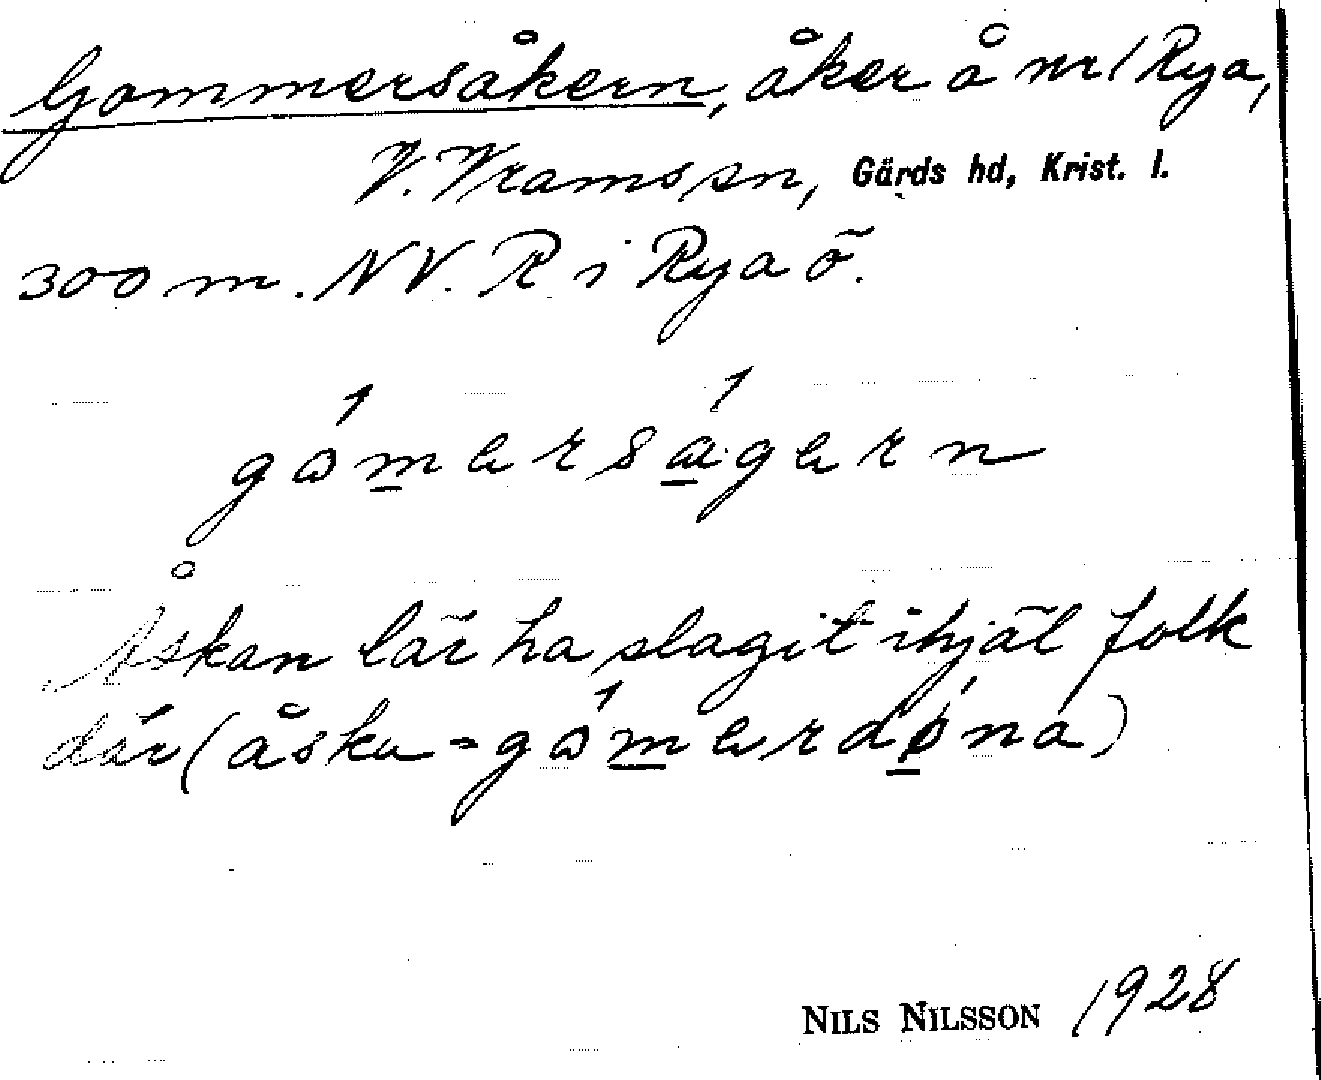 Gommersåkern, åker å nr 1 Rya,
V. Vrams sn, Gärds hd, Krist. l.
300 m. NV. R i Rya ö.
gómersågern
Åskan lär ha slagit ihjäl folk
där (åska = gómerdǿna)
NILS NILSSON 1928